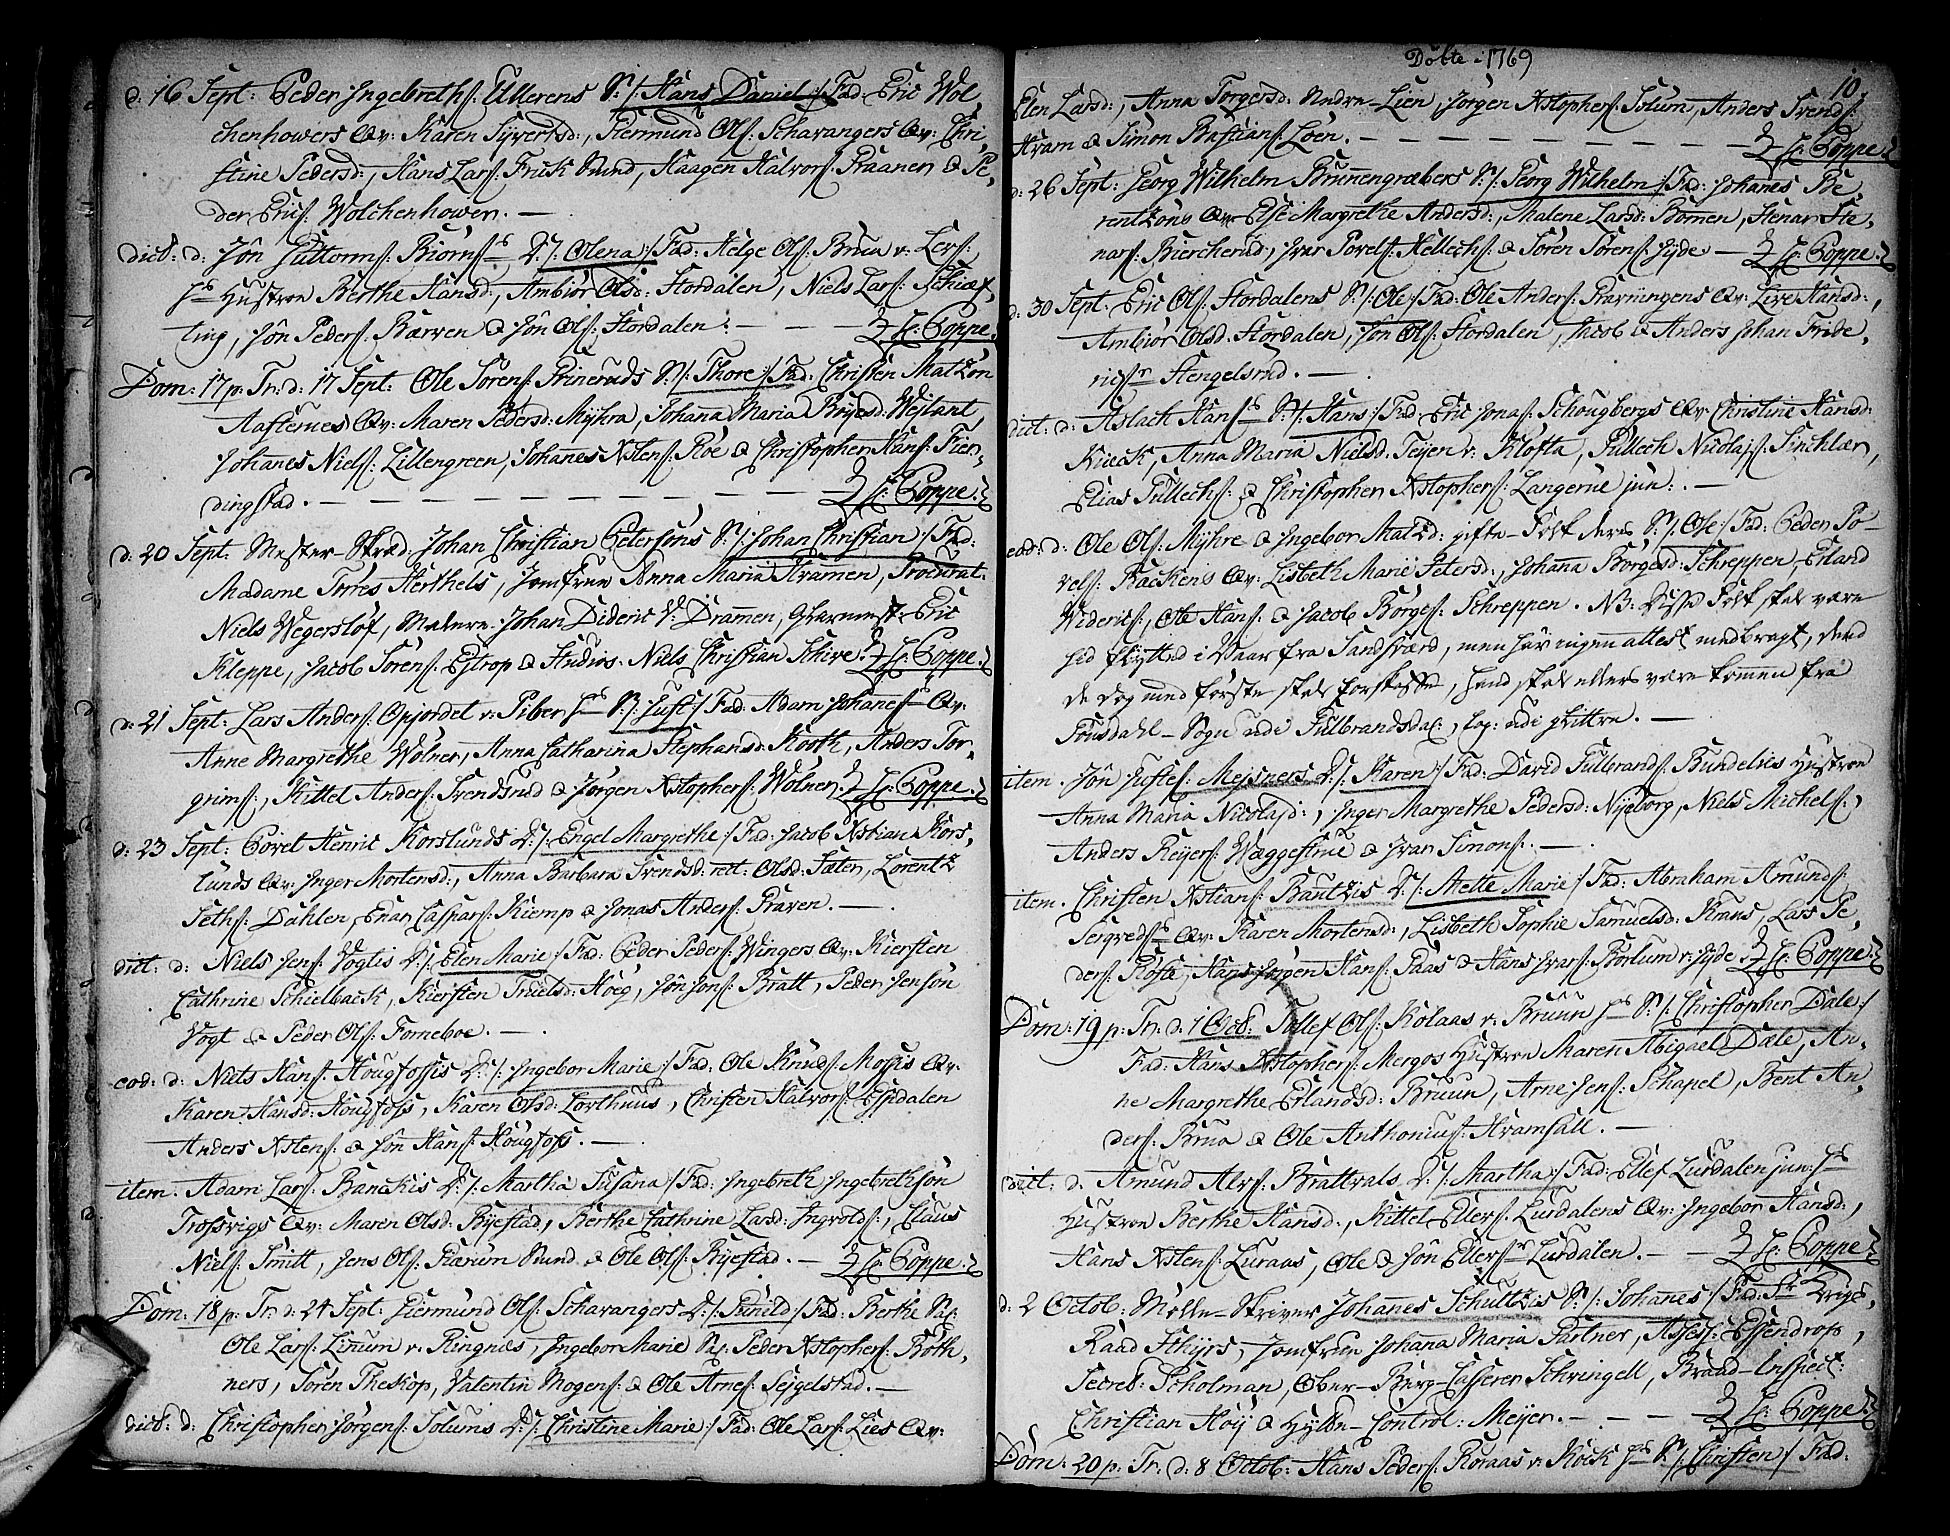 d. 16 Sept: Peder Ingebrethſ: Ullerens S: /: Hans Daniel :/ Fad: Eric Wol,
chenhowers Qv: Karen Syvertsd:, Giermund Olſ: Scharangers Qv: Chri,
stine Pedersd:, Hans Larſ: Frick Smed, Haagen Halvorſ: Praanen & Pe,
der Ericſ: Wolchenhower. —
dict: d: Jôn Guttormſ: Biornſ D: /: Olena :/ Fad: Helge Olſ: Brua v: Lerſ:
Hustrue Berthe Hansd:, Ambiør Olsd: Stordalen, Niels Larſ: Schief,
ting, Jôn Pederſ: Bærven & Jôn Olſ: Stordalen: — — — Coppe.
Dom: 17 p: Tr: d: 17 Sept: Ole Sørenſ: Prineruds S: /: Thore :/ Fad: Christen Matzôn
Aasternes Qv: Maren Pedersd: Mÿhra, Johana Maria Bøyesd: Weÿlant,
Johanes Nielſ: Lillengreen, Johanes Xstenſ: Roe & Christopher Hanſ: Fier,
dingstad. — — — Coppe.
d: 20 Sept: Mester-Skræd. Johan Christian Petersôns S: /: Johan Christian :/ Fad:
Madame Torres Herthels, Jomfrue Anna Maria Kramer, Procurat:
Niels Wegersløf, Maler Johan Dideric V: Dramen, Eric
Kleppe, Jacob Sørenſ: Estrop & Studios. Niels Christian Schive. Coppe.
d: 21 Sept: Lars Anderſ: Opjordet v: Piber S: /: Just :/ Fad: Adam Johaneſ Qv:
Anne Margrethe Wølner, Anna Catharina Stephansd: Kooth, Anders Tor,
grimſ:, Kittel Anderſ: Svendsrud & Jørgen Xstopherſ: Wølner. Coppe.
d: 23 Sept: Povel Henric Korslunds D: /: Engel Margrethe :/ Fad: Jacob Xstian Kors,
lunds Qv: Inger Mortensd:, Anna Barbara Svendsd: rett: Olsd: Sæter, Lorentz
Sethſ: Dahlen, Enar Casparſ: Kiemp & Jonas Anderſ: Praven. —
dict: d: Niels Jenſ: Vogtis D: /: Elen Marie :/ Fad: Peder Pederſ: Wingers Qv: Kiersten
Cathrine Schielback, Kiersten Truelsd: Høeg, Jôn Jonſ: Bratt, Peder Jensôn
Vogt & Peder Olſ: Forneboe. —
eod: d: Niels Hanſ: Hougfossis D: /: Ingebor Marie :/ Fad: Ole Knudſ: Mossis Qv:
Karen Hansd: Hougfoss, Karen Olsd: Lorthuus, Christen Halvorſ: Espdalen
Anders Xstenſ: & Jôn Hanſ: Hougfoss. —
item. Adam Larſ: Banckis D: /: Martha Susana :/ Fad: Ingebreth Ingebrethsôn
Trossvigs Qv: Maren Olsd: Rÿestad, Berthe Cathrine Larsd: Ingvoldſ:, Claus
Nielſ: Smitt, Jens Olſ: Bærum Smed & Ole Olſ: Rÿestad. — Coppe.
Dom: 18 p: Tr: d: 24 Sept: Giermund Olſ: Scharangers D: /: Guneld :/ Fad: Berthe
Ole Larſ: Linum v: Ringnæs, Ingebor Marie Peder Xstopherſ: Both,
ners, Sôren Theskop, Valentin Mogenſ: & Ole Arneſ: Sejgelstad. —
dict: d: Christopher Jôrgenſ: Solums D: /: Christine Marie :/ Fad: Ole Larſ: Lies Qv:
Döbte 1769
10.
Elen Larsd:, Anna Torgersd: Undre-Lien, Jôrgen Xstopherſ: Solum, Anders Svendſ:
Hvam & Simon Bastianſ: Løen. — — — Coppe.
d: 26 Sept: Georg Wilhelm Brunnengræbers S: /: Georg Wilhelm :/ Fad: Johanes Be,
rentzôns Qv: Else Margrethe Andersd:, Malene Larsd: Bômen, Stenar Ste,
narſ: Biercherud, Ivar Povelſ: Hellechſ: & Sôren Sôrenſ: Gÿde — Coppe.
d: 30 Sept: Eric Olſ: Stordalens S: /: Ole :/ Fad: Ole Anderſ: Rarningens Qv: Live Hansd:,
Ambiør Olsd. Stordalen, Jôn Olſ: Stordalen, Jacob & Anders Johan Fride,
ricſ Stengelsrud. —
dict: d: Aslach Hanſ S: /: Hans :/ Fad: Eric Jonaſ: Schougbergs Qv: Christine Hansd:
Kieck, Anna Maria Nielsd. Teÿen v: Klôfta, Gullech Nicolajſ: Sinchlær,
Elias Gullechſ: & Christopher Xstopherſ: Langerue jun: —
eod: d: Ole Olſ: Mÿhre & Ingebor Matzd: gifte Folk deres S: /: Ole :/ Fad: Peder Po,
velſ: Backens Qv: Lisbeth Marie Petersd:, Johana Borgesd: Schreppen, Erland
Widericſ:, Ole Hanſ: & Jacob Børgeſ: Schreppen. NB: Disse Folk skal være
hid flyttet i Vaar fra Sandsværd, men har ingen attest medbragt, hvad
de dog med første skal forskaffe, hand skal ellers være kommen fra
Fonsdahl-Sogn udi Gulbrandsdal:, og: udi
item. Jôn Justeſ: Meÿsners D: /: Karen :/ Fad: David Gulbrandſ: Bundelies Hustrue
Anna Maria Nicolajd:, Inger Margrethe Pedersd: Nÿeborg, Niels Michelſ:,
Anders Reÿerſ: Wæggestrue & Ivar Simonſ: —
item. Christen Xstianſ: Bautzis D: /: Mette Marie :/ Fad: Abraham Amundſ:
Seigredſ Qv: Karen Mortensd:, Lisbeth Sophie Samuelsd: Krans, Lars Pe,
derſ: Rôste, Hans Jôrgen Hanſ: Paas & Hans Ivarſ: Borlum v: Gÿde. Coppe.
Dom: 19 p: Tr: d: 1 Octb: Tollef Olſ: Kolaas v: Bruun S: /: Christopher Dale :/
Fad: Hans Xstopherſ: Mergos Hustrue Maren Abigael Dæle, An,
ne Margrethe Erlandsd: Bruun, Arne Jenſ: Schapel, Bent An,
derſ: Brua & Ole Anthoniusſ: Hvamsall. —
dict: d: Amund Alvſ: Brattvals D: /: Martha :/ Fad: Ellef Lurdalen jun:
Hustrue Berthe Hansd:, Kittel Ellefſ: Lurdalens Qv: Ingebor Hansd:,
Hans Xstenſ: Luraas, Ole & Jôn Ellefſ Lurdalen. — — Coppe.
d: 2 Octob: Mølle-Skriver Johannes Schultzis S: /: Johanes :/ Fad: Krigs,
Raad Sthÿrs, Jomfrue Johana Maria Partner, Assess: Essendrop,
Secret: Scholman, Ober-Berg-Casserer Schringell, Braad-Inspect:
Christian Høÿ & Hytte-Control: Meÿer. — — — Coppe.
Dom: 20 p: Tr: d: 8 Octob: Hans Pederſ: Roraas v: Kock S: /: Christen :/ Fad: